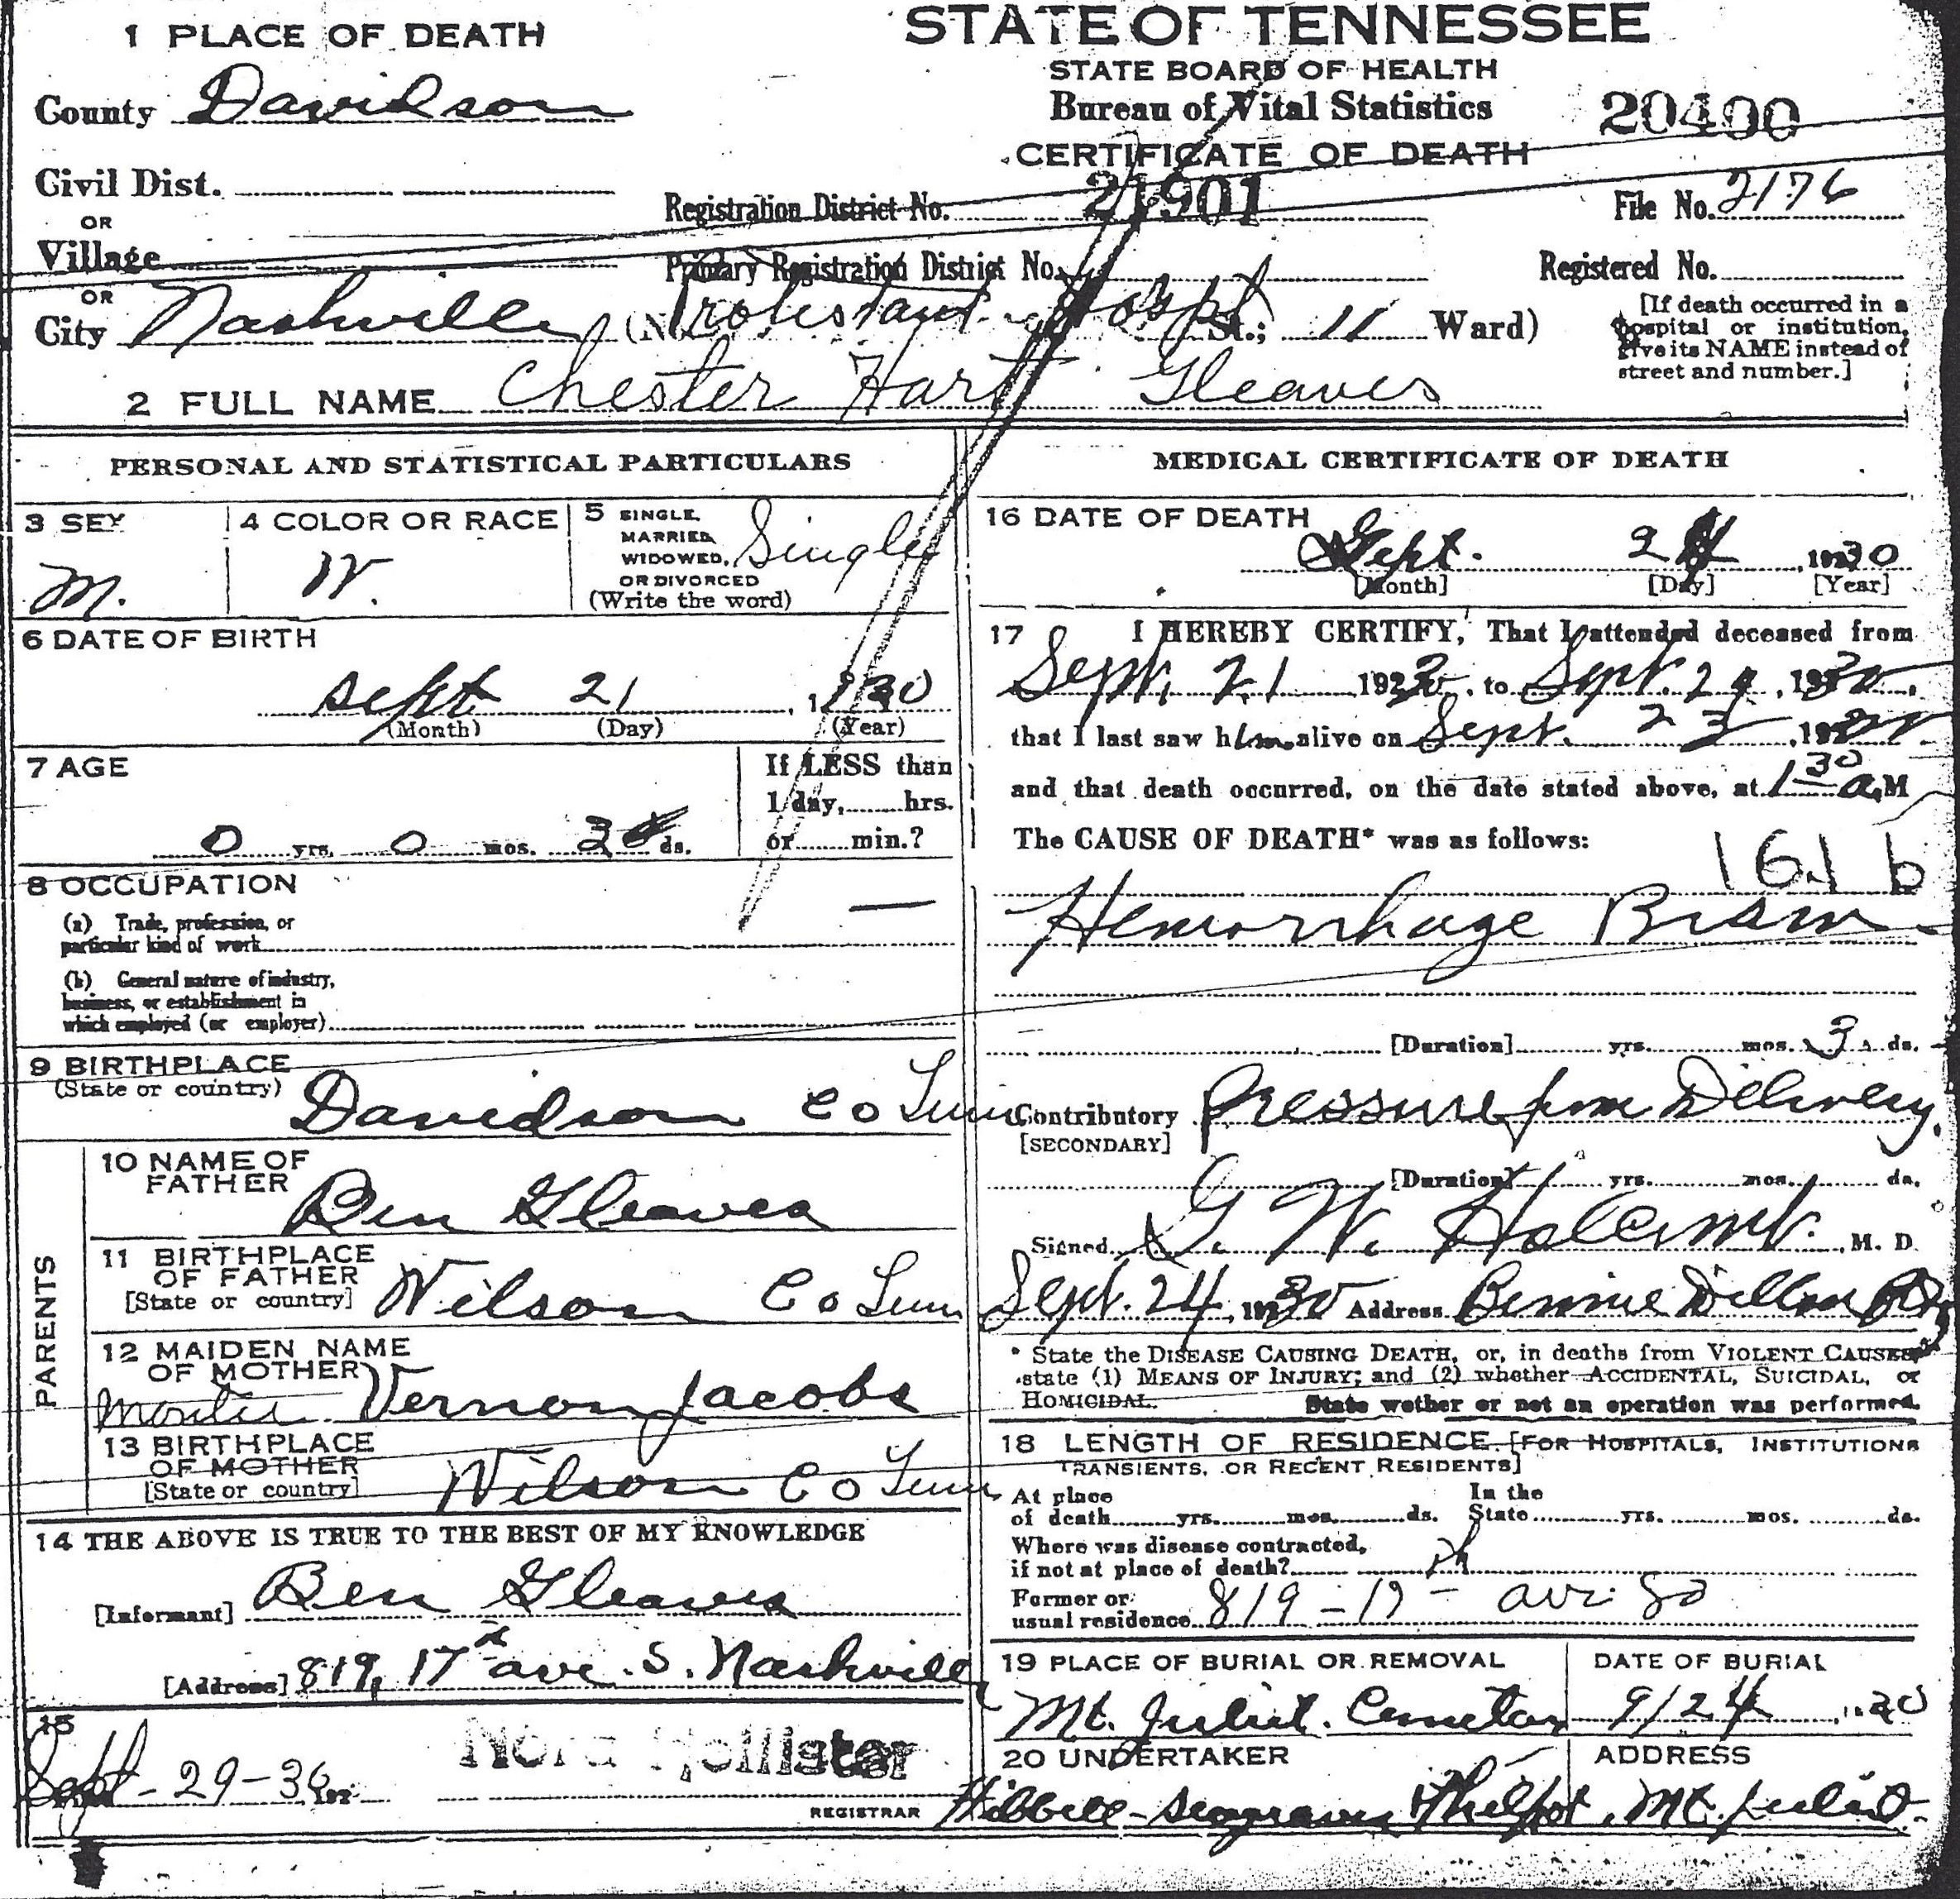 STATE OF TENNESSEE
STATE BOARD OF HEALTH
Bureau of Vital Statistics
CERTIFICATE OF DEATH
20400
1 PLACE OF DEATH
County Davidson
Civil Dist.
OR
Village
OR
City Nashville (No. Protestant Hospt St.; 11 Ward)
Registration District No. 21901
File No. 2176
Primary Registration District No.
Registered No.
[If death occurred in a
hospital or institution,
give its NAME instead of
street and number.]
2 FULL NAME Chester Hart Gleaves
PERSONAL AND STATISTICAL PARTICULARS
3 SEX
M.
4 COLOR OR RACE
W.
5 SINGLE,
MARRIED,
WIDOWED,
OR DIVORCED
(Write the word)
Single
6 DATE OF BIRTH
Sept 21, 1930
(Month) (Day) (Year)
7 AGE
0 yrs. 0 mos. 3 ds.
If LESS than
1 day, hrs.
or min.?
8 OCCUPATION
(a) Trade, profession, or
particular kind of work
—
(b) General nature of industry,
business, or establishment in
which employed (or employer)
9 BIRTHPLACE
(State or country)
Davidson Co Tenn
PARENTS
10 NAME OF
FATHER
Ben Gleaves
11 BIRTHPLACE
OF FATHER
[State or country]
Wilson Co Tenn
12 MAIDEN NAME
OF MOTHER
Vernon Jacobs
13 BIRTHPLACE
OF MOTHER
[State or country]
Wilson Co Tenn
14 THE ABOVE IS TRUE TO THE BEST OF MY KNOWLEDGE
[Informant] Ben Gleaves
[Address] 819, 17th ave. S. Nashville
15
Sept-29-30 192
Nora Hollister
REGISTRAR
MEDICAL CERTIFICATE OF DEATH
16 DATE OF DEATH
Sept. 24, 1930
[Month] [Day] [Year]
17 I HEREBY CERTIFY, That I attended deceased from
Sept. 21 1930, to Sept. 24, 1930,
that I last saw him alive on Sept. 23, 1930
and that death occurred, on the date stated above, at 1 30 a.M
The CAUSE OF DEATH* was as follows:
161 b
Hemorrhage Brain
[Duration] yrs. mos. 3 ds.
Contributory Pressure from Delivery.
[SECONDARY]
[Duration] yrs. mos. ds.
Signed G. W. Holcomb. M. D.
Sept. 24, 1930 Address Bennie Dillon Bldg
* State the DISEASE CAUSING DEATH, or, in deaths from VIOLENT CAUSES
state (1) MEANS OF INJURY; and (2) whether ACCIDENTAL, SUICIDAL, or
HOMICIDAL. State wether or not an operation was performed.
18 LENGTH OF RESIDENCE [FOR HOSPITALS, INSTITUTIONS
TRANSIENTS, OR RECENT RESIDENTS]
At place
of death yrs. mos. ds.
In the
State yrs. mos. ds.
Where was disease contracted,
if not at place of death?
Former or
usual residence 819 - 17 - ave So
19 PLACE OF BURIAL OR REMOVAL
Mt. Juliet. Cemetary
DATE OF BURIAL
9/24 1930
20 UNDERTAKER
Hibbett-Seagraves Philpot
ADDRESS
Mt. Juliet.